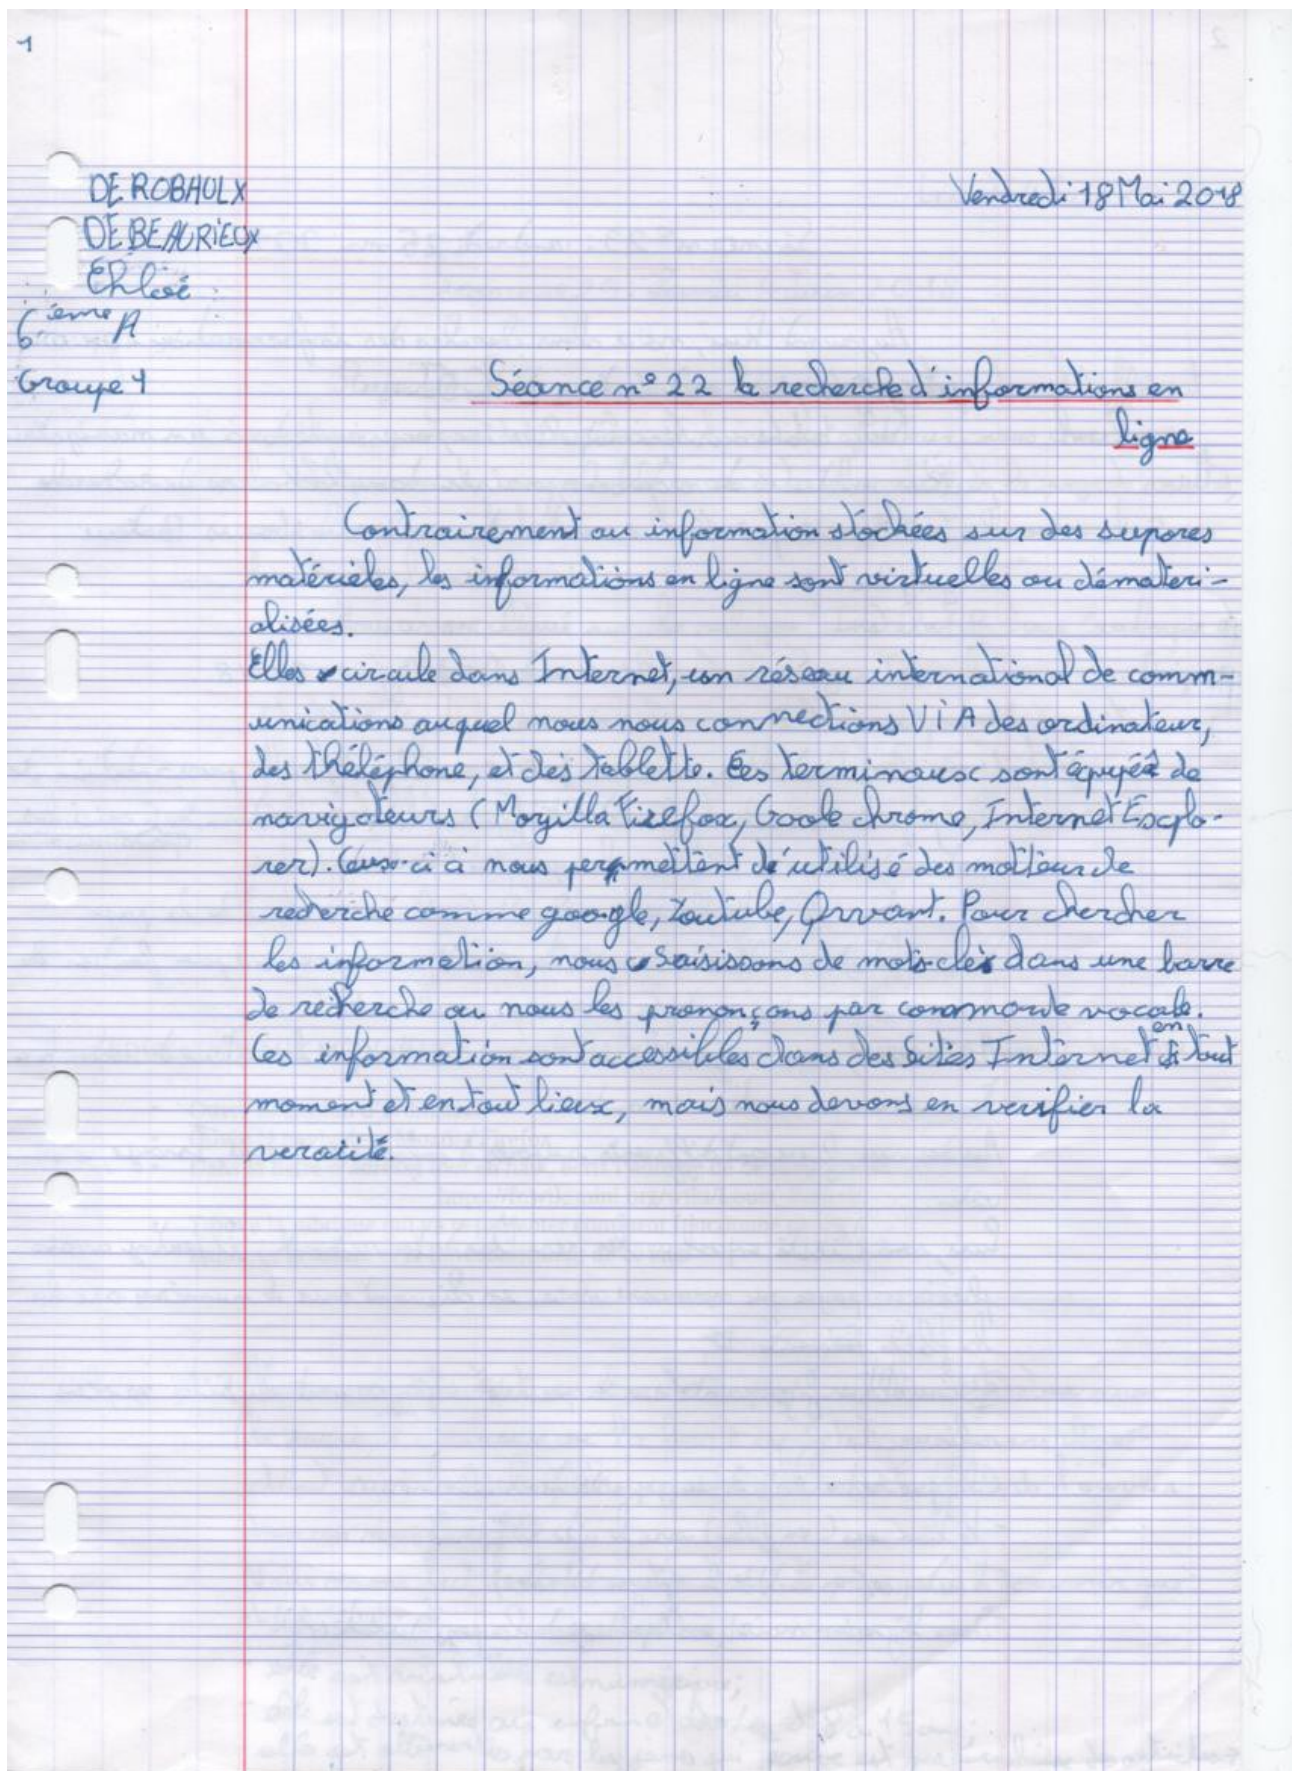 1
DE ROBAULX
Vendredi 18 Mai 2018
DE BEAURIEUX
Chloé
6ième A
Groupe 1
Séance n° 22 la recherche d'informations en
ligne
Contrairement au information stockées sur des supores
matérièles, les informations en ligne sont virtuelles ou démateri-
alisées.
Elles circule dans Internet, un réseau international de comm-
unications auquel nous nous connections ViA des ordinateur,
des théléphone, et des tablette. Ces terminaux sont équpés de
navigateurs (Mozilla Firefox, Goole chrome, Internet Explo-
rer). Ceux-ci à nous permettent d'utilisé des motteur de
recherche comme google, Youtube, Qwant. Pour chercher
les information, nous saisissons de mots-clés dans une barre
de recherche ou nous les prononçons par commande vocale.
Ces information sont accessibles dans des Sites Internet en tout
moment et en tout lieux, mais nous devons en verifier la
veracité.